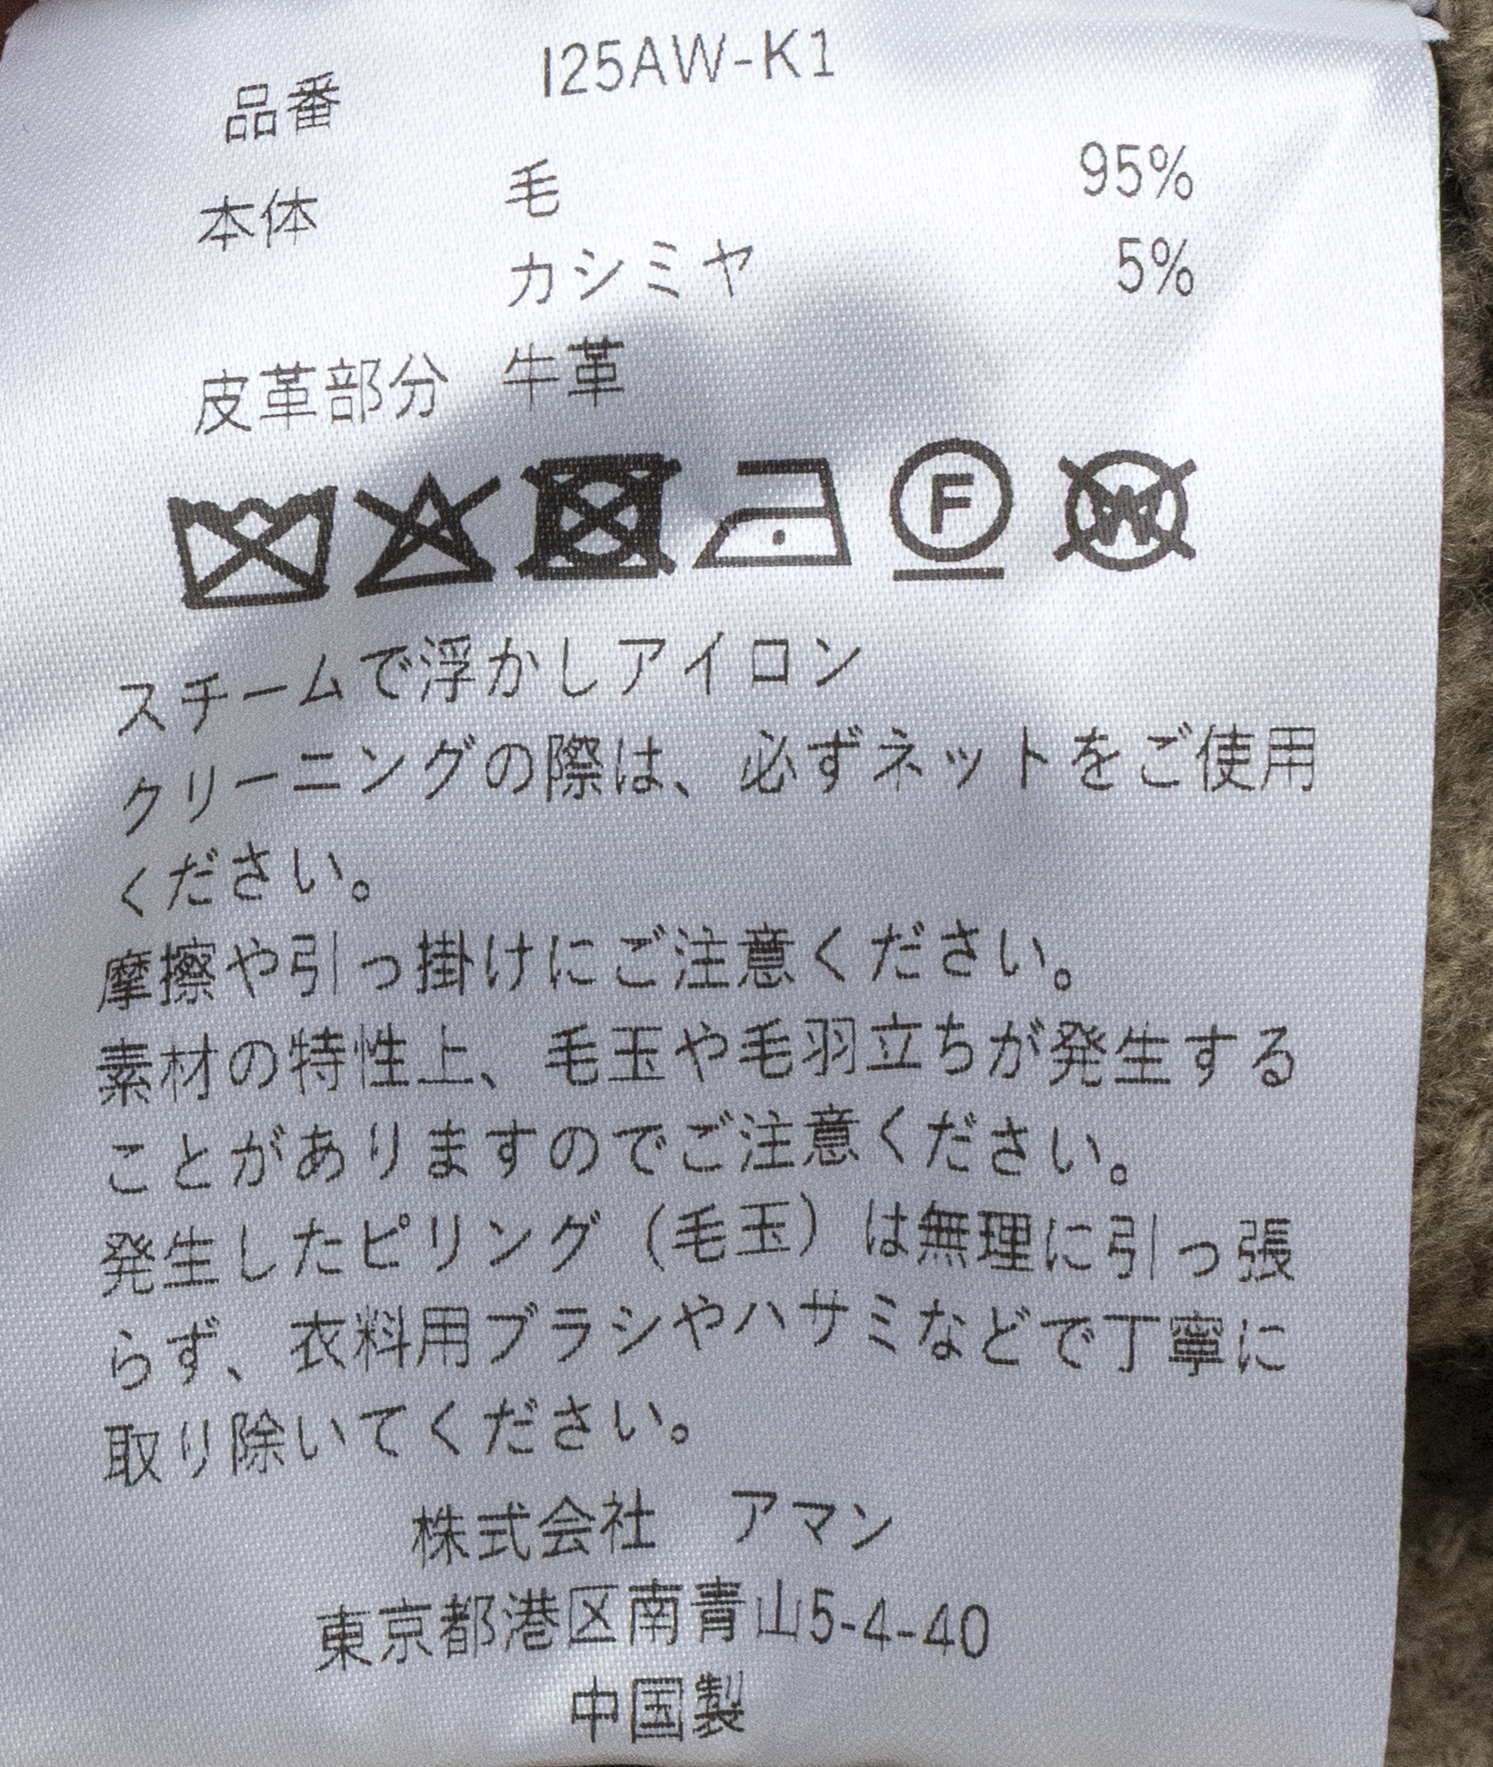 品番 I25AW-K1
本体 毛 95%
カシミヤ 5%
皮革部分 牛革
F W
スチームで浮かしアイロン
クリーニングの際は、必ずネットをご使用
ください。
摩擦や引っ掛けにご注意ください。
素材の特性上、毛玉や毛羽立ちが発生する
ことがありますのでご注意ください。
発生したピリング（毛玉）は無理に引っ張
らず、衣料用ブラシやハサミなどで丁寧に
取り除いてください。
株式会社 アマン
東京都港区南青山5-4-40
中国製